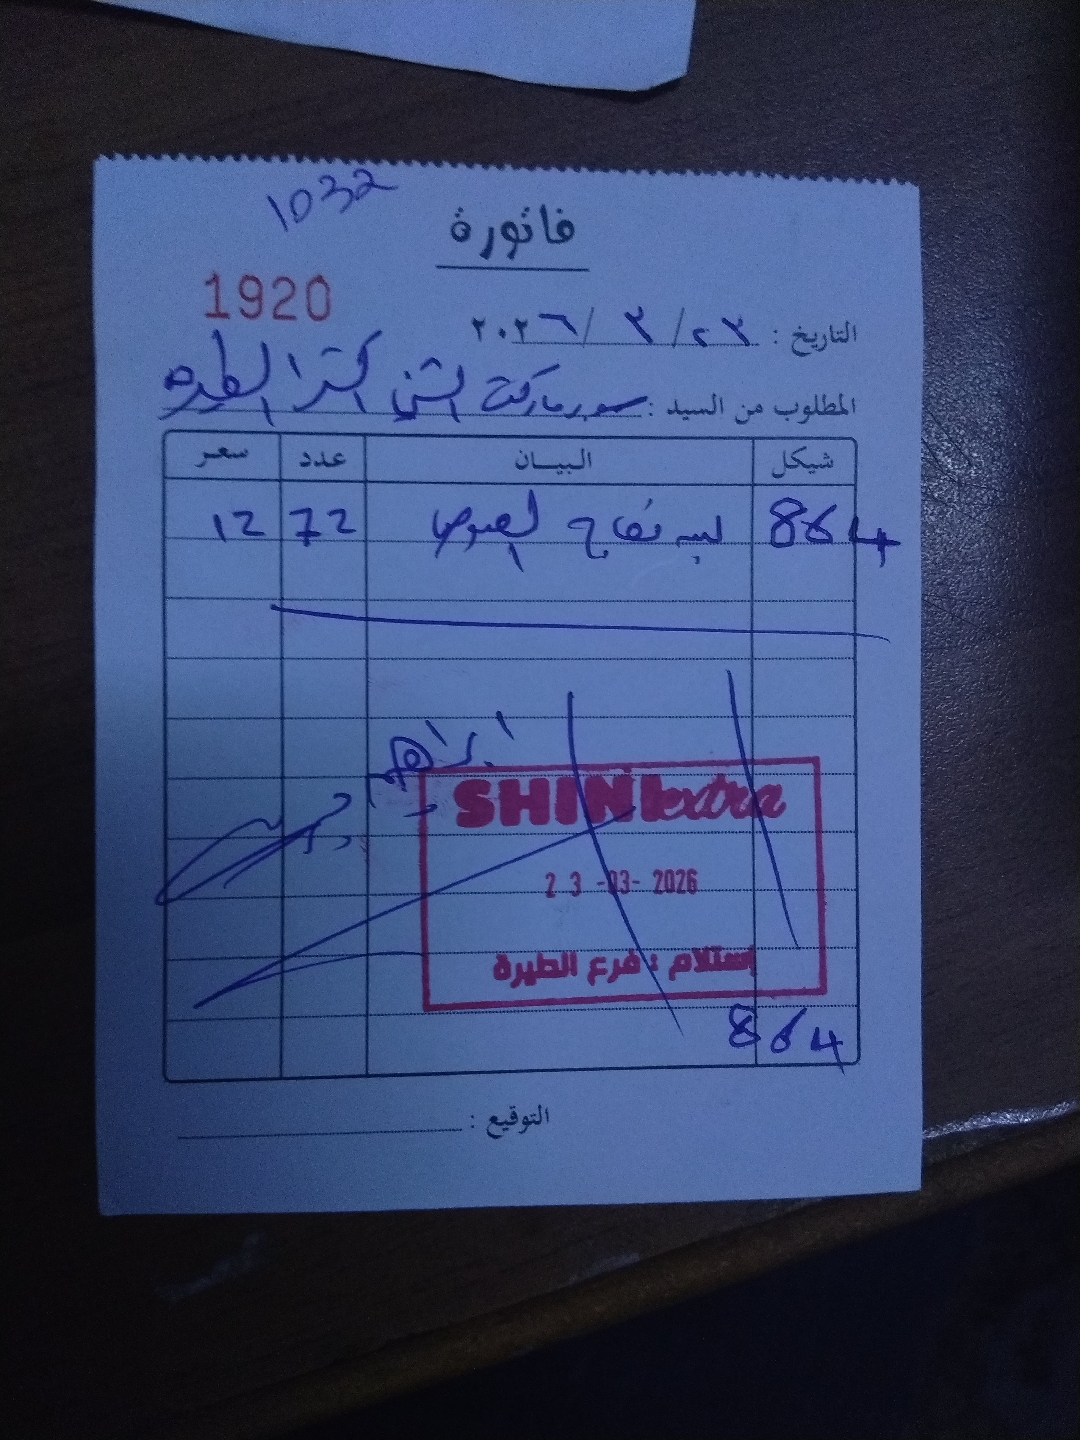 1032
فاتورة
1920
التاريخ : ٢٣ / ٣ / ٢٠٢٦
المطلوب من السيد : سوبرماركت الشني اكسترا الطيره
شيكل البيان عدد سعر
864 لبنه تفاح 72 12
ابراهيم
SHINI extra
23 -03- 2026
إستلام : فرع الطيرة
864
التوقيع :